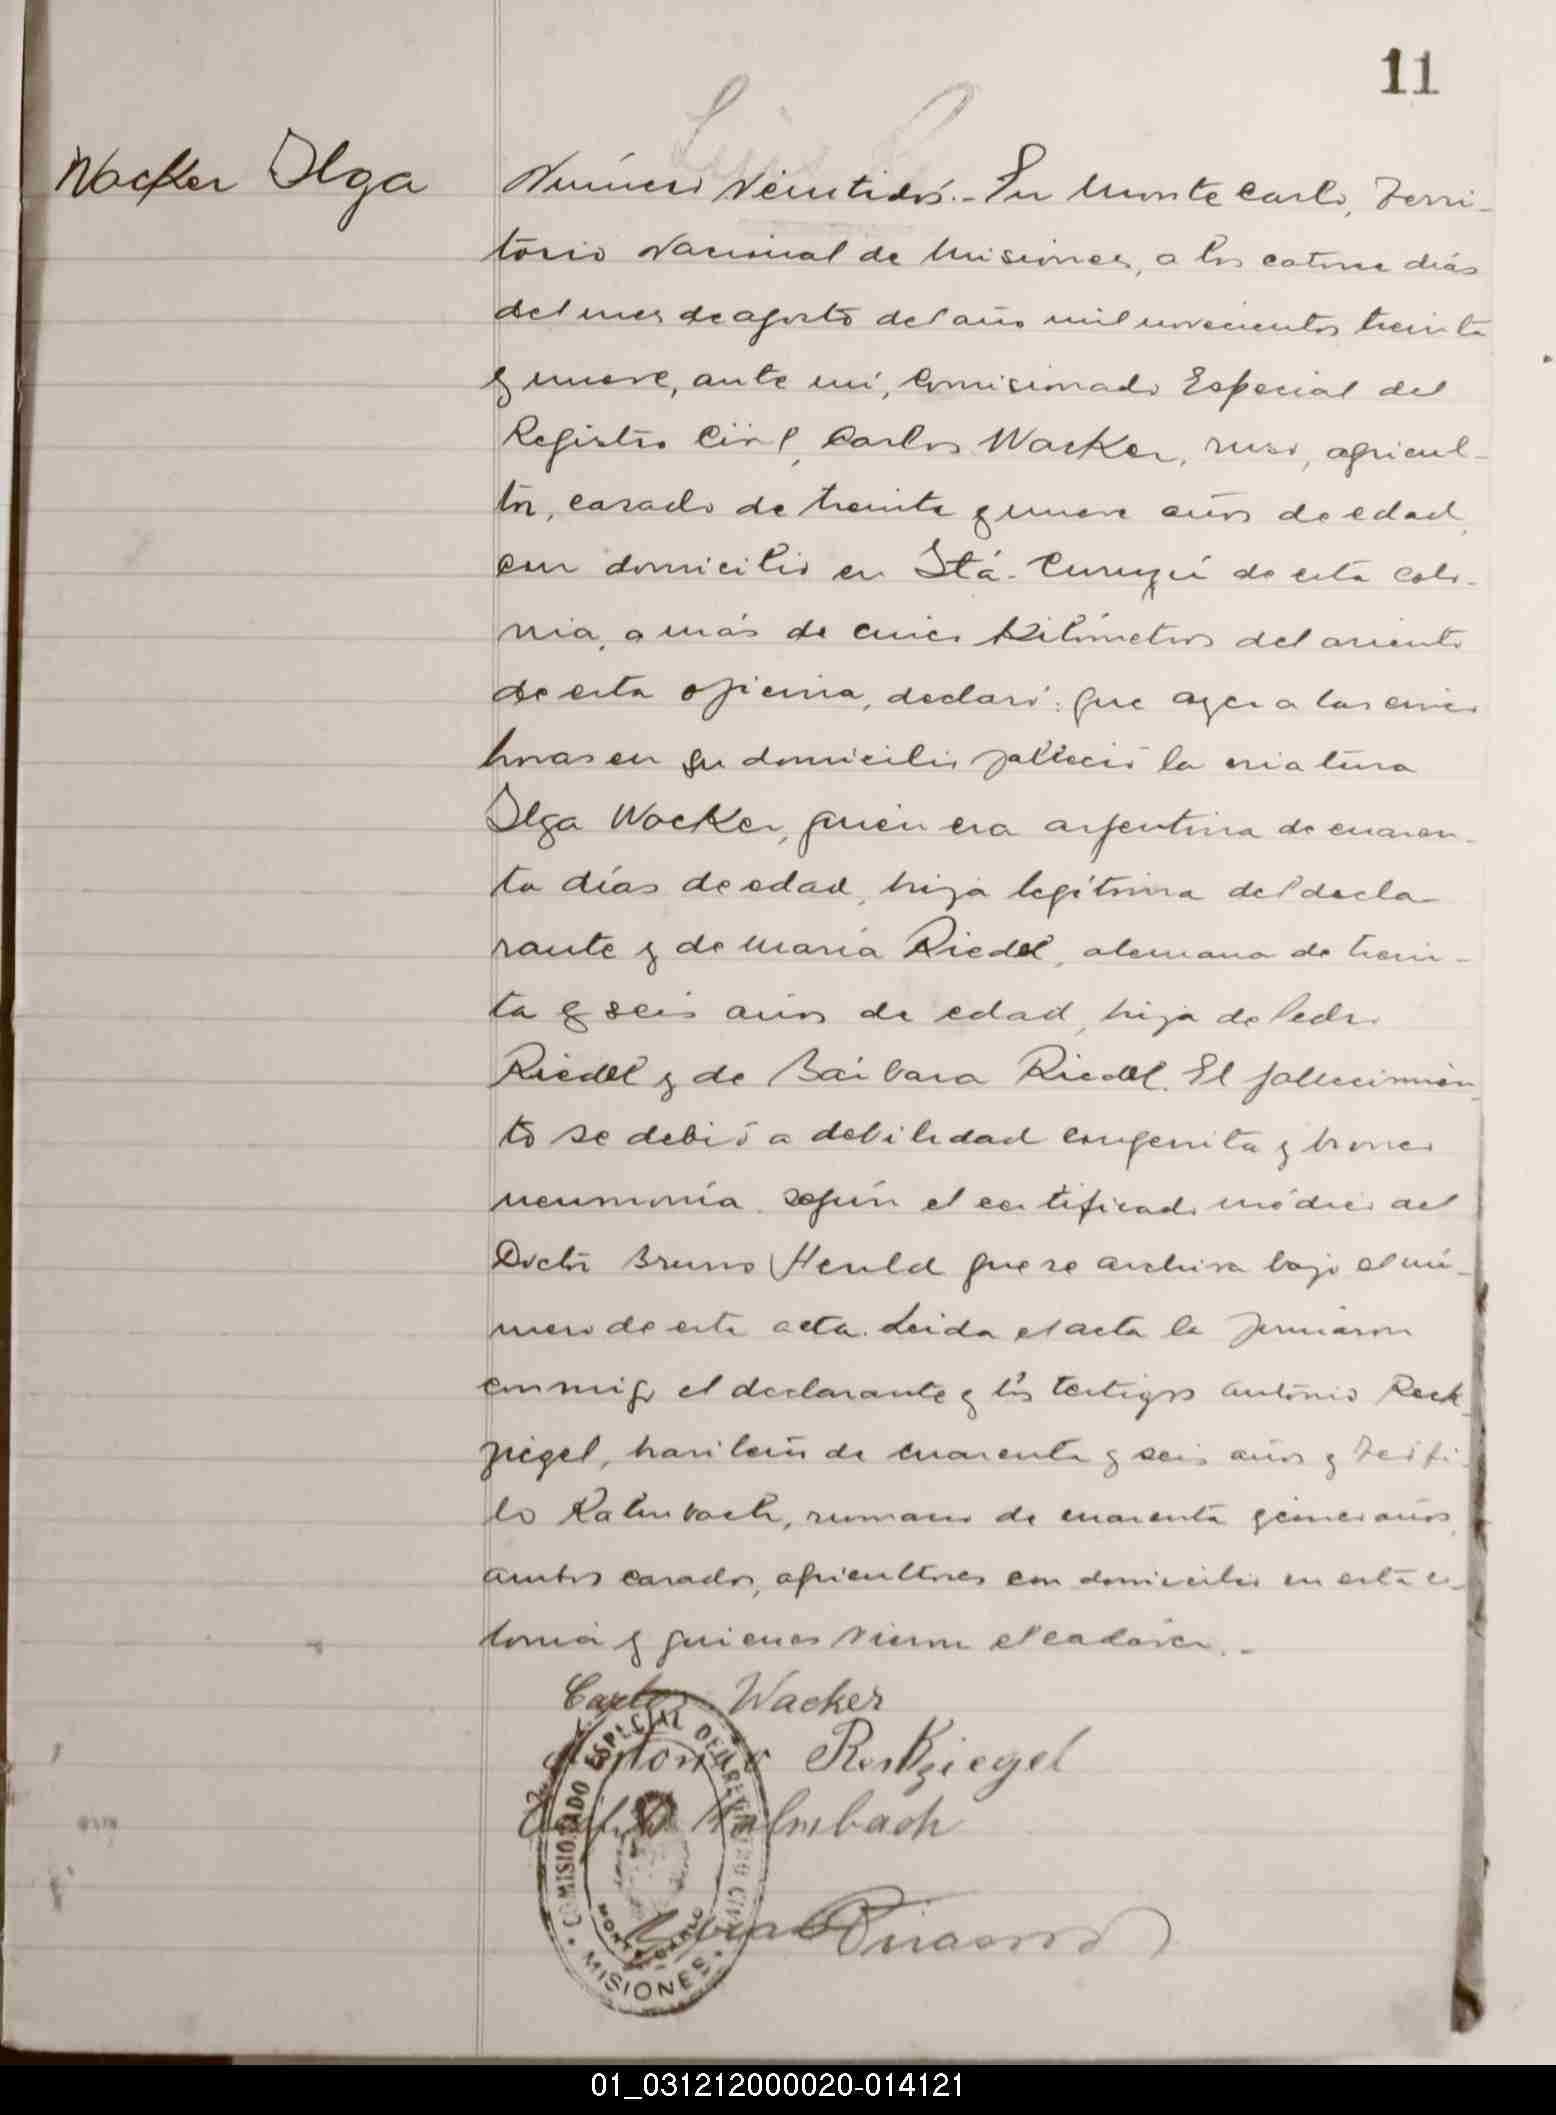 11
Wacker Olga
Número veintidós.- En Monte Carlo, Terri-
torio Nacional de Misiones, a los catorce días
del mes de agosto del año mil novecientos treinta
y nueve, ante mí, Comisionado Especial del
Registro Civil, Carlos Wacker, ruso, agricul-
tor, casado de treinta y nueve años de edad,
con domicilio en Itá-Curuzú de esta colo-
nia, a más de cinco kilómetros del asiento
de esta oficina, declaró: que ayer a las cinco
horas en su domicilio falleció la criatura
Olga Wacker, quien era argentina de cuaren-
ta días de edad, hija legítima del decla-
rante y de María Riedel, alemana de trein-
ta y seis años de edad, hija de Pedro
Riedel y de Bárbara Riedel. El fallecimien-
to se debió a debilidad congenita y bronco
neumonía según el certificado médico del
Doctor Bruno Heuld que se archiva bajo el nú-
mero de esta acta. Leida el acta la firmaron
conmigo el declarante y los testigos Antonio Reck-
ziegel, brasilero de cuarenta y seis años y Teófi-
lo Kalmbach, rumano de cuarenta y cinco años,
ambos casados, agricultores con domicilio en esta co-
lonia y quienes vieron el cadáver.-
Carlos Wacker
Antonio Reckziegel
Teófilo Kalmbach
COMISIONADO ESPECIAL DEL REGISTRO CIVIL
MONTE CARLO
MISIONES
01_031212000020-014121